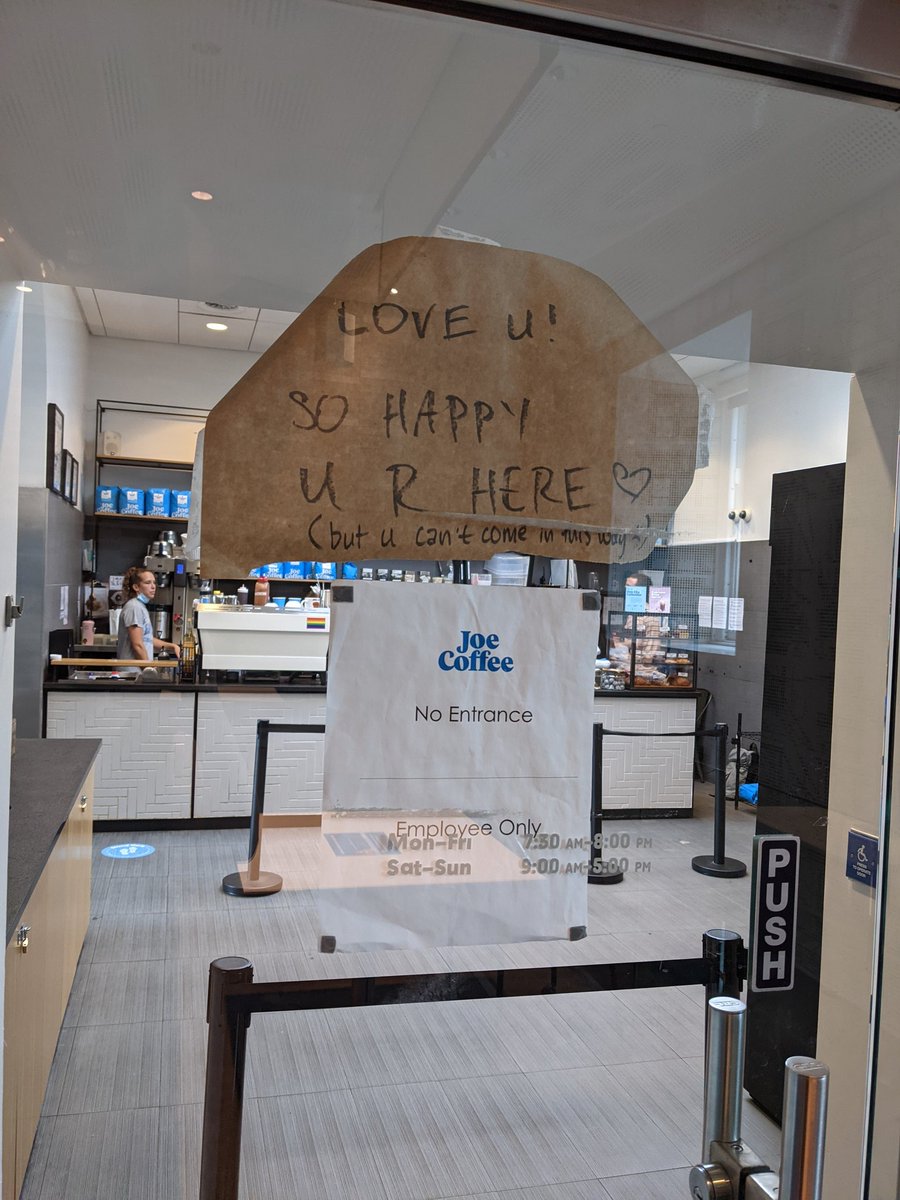 LOVE U!
SO HAPPY
U R HERE ♡
(but u can't come in this way :))
Joe
Coffee
No Entrance
Employee Only
Mon–Fri 7:30 AM–8:00 PM
Sat–Sun 9:00 AM–5:00 PM
PUSH
Joe
Coffee